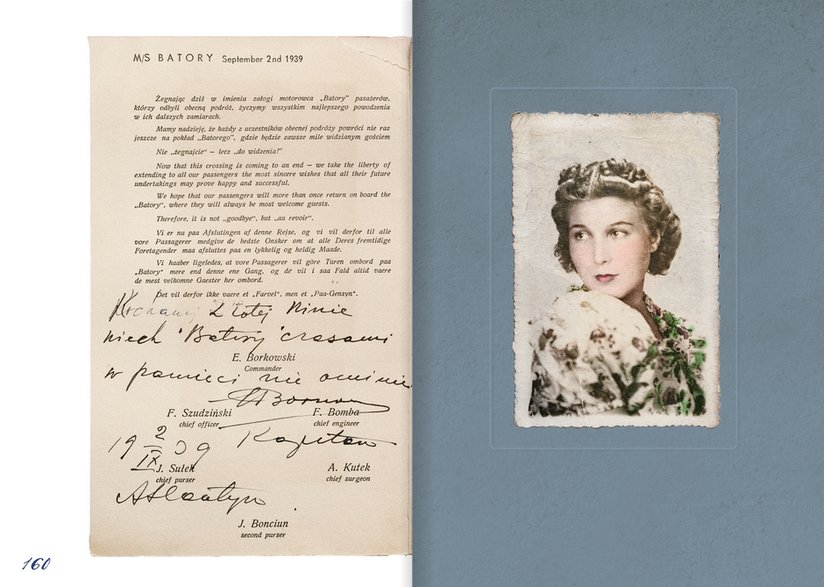 M/S BATORY September 2nd 1939
Żegnając dziś w imieniu załogi motorowca „Batory" pasażerów,
którzy odbyli obecną podróż, życzymy wszystkim najlepszego powodzenia
w ich dalszych zamiarach.
Mamy nadzieję, że każdy z uczestników obecnej podróży powróci nie raz
jeszcze na pokład „Batorego", gdzie będzie zawsze mile widzianym gościem
Nie „żegnajcie" – lecz „do widzenia!"
Now that this crossing is coming to an end – we take the liberty of
extending to all our passengers the most sincere wishes that all their future
undertakings may prove happy and successful.
We hope that our passengers will more than once return on board the
„Batory", where they will always be most welcome guests.
Therefore, it is not „goodbye", but „au revoir".
Vi er nu paa Afslutingen af denne Rejse, og vi vil derfor til alle
vore Passagerer medgive de bedste Onsker om at alle Deres fremtidige
Foretagender maa afsluttes paa en lykkelig og heldig Maade.
Vi haaber ligeledes, at vore Passagerer vil göre Turen ombord paa
„Batory" mere end denne ene Gang, og de vil i saa Fald altid vaere
de mest velkomne Gaester her ombord.
Det vil derfor ikke vaere et „Farvel", men et „Paa-Gensyn".
Kochanej Złotej Ninie
niech "Batory" czasami
E. Borkowski
Commander
w pamięci nie ominie
F. Szudziński F. Bomba
chief officer chief engineer
Kapitan
19 2/IX 39
J. Sutek A. Kutek
chief purser chief surgeon
Atlantyk
J. Bonciun
second purser
160